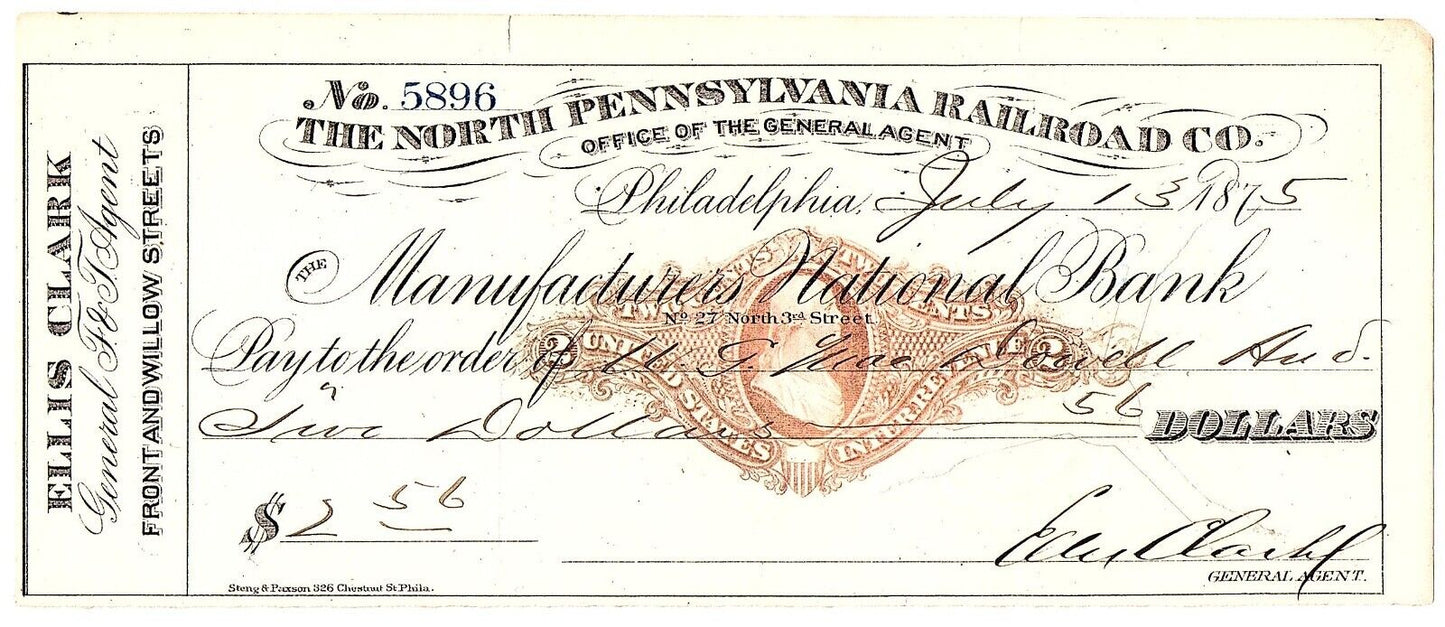 No. 5896
THE NORTH PENNSYLVANIA RAILROAD CO.
OFFICE OF THE GENERAL AGENT
Philadelphia, July 13 1875
THE Manufacturers National Bank
No 27 North 3rd Street.
Pay to the order of
Two Dollars 56 DOLLARS
$ 2 56
Ellis Clark
GENERAL AGENT.
Steng & Paxson 326 Chestnut St Phila.
ELLIS CLARK
General F. & T. Agent
FRONT AND WILLOW STREETS
TWO CENTS TWO CENTS
2 UNITED STATES INTER. REVENUE 2